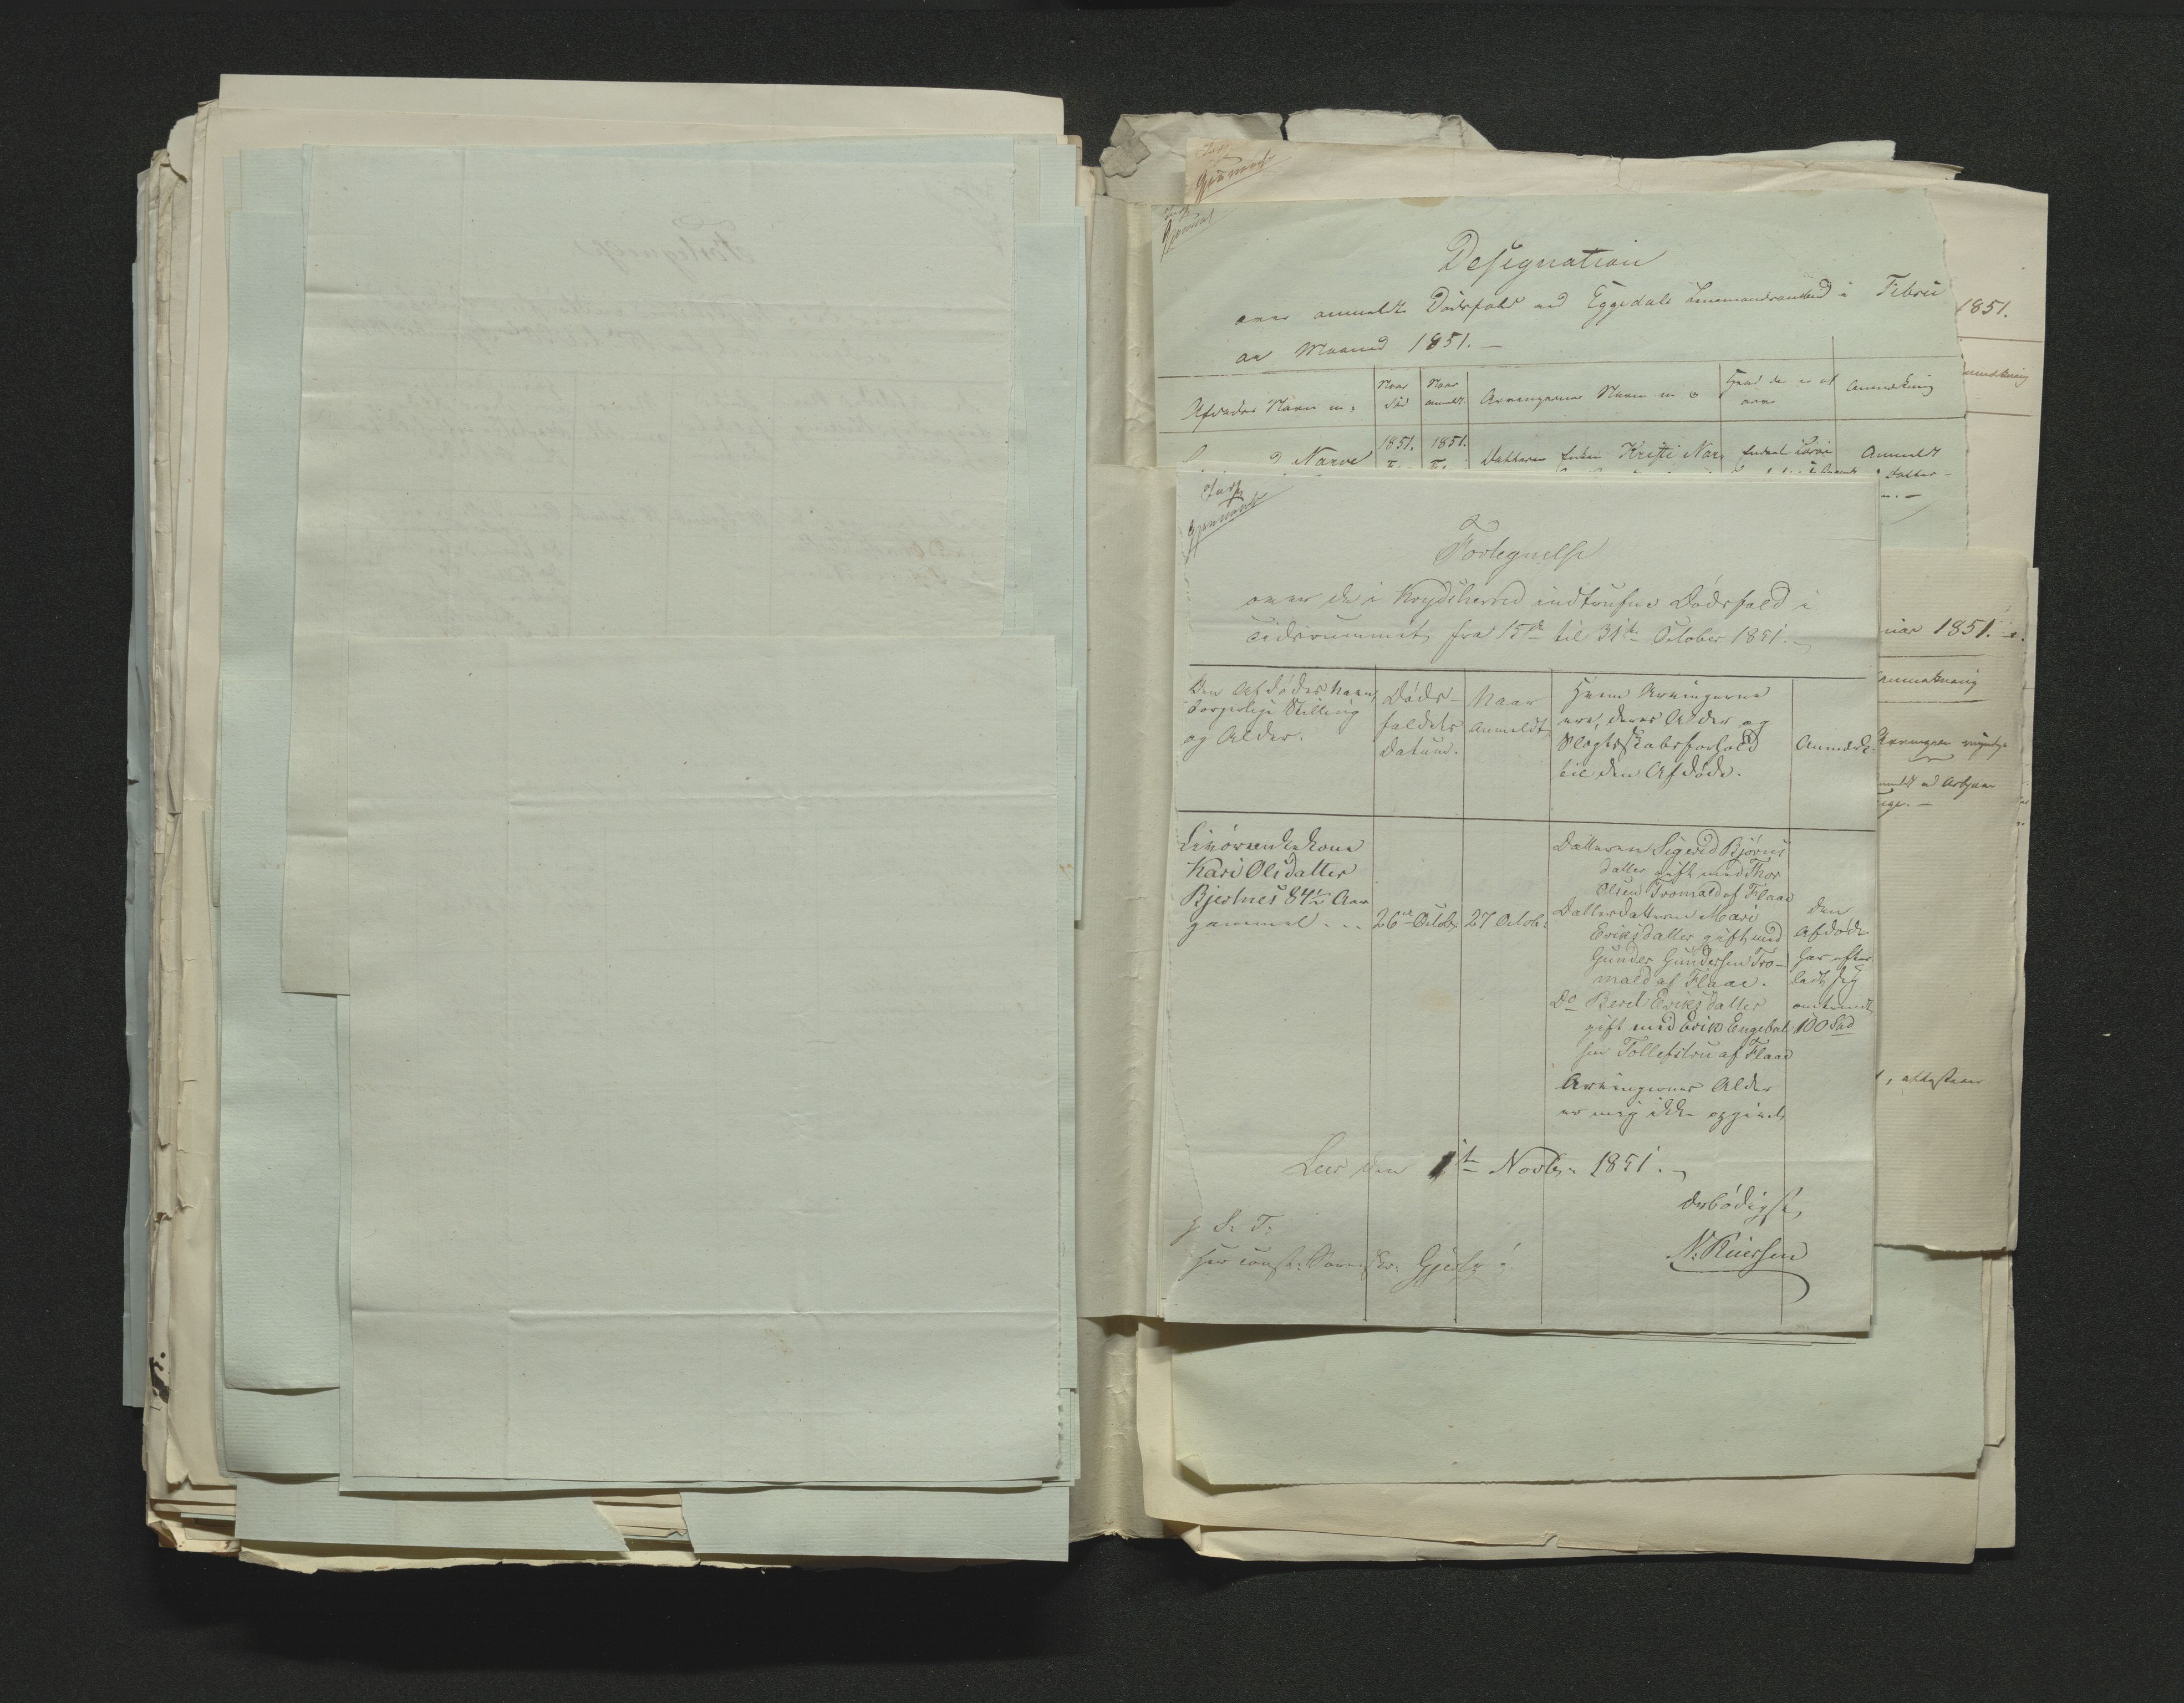 Designation
over anmeldte Dødsfald ved Eggedals Lensmandsombud i Februar
Maaned 1851. —
1851.
Afdødes Navn m.
Naar død
Naar anmeldt
Arvingernes Navn m
Hvad de er af
Anmærkning
Narve
1851.
1851.
Datteren Enken Kristi Nar
Anmeldt
Datter
Fortegnelse
over de i Krydsherred indtrufne Dødsfald i
Tidsrummet fra 15de til 31te October 1851.
Den Afdødes Navn,
borgerlige Stilling
og Alder.
Døds-
faldets
Datum.
Naar
Anmeldt
Hvem Arvingerne
ere, deres Alder og
Slægtskabsforhold
til den Afdøde.
Anmærk.
Kari Olsdatter
Bjertnes 84½ Aar
gammel
26de Octobr
27 Octob:
Datteren Sigrid Bjørns
datter gift med Thor
Olsen Tromald af Flaae
Datterdatteren Mari
Eriksdatter gift med
Gunder Gundersen Tro-
mald af Flaae.
Do Berit Eriksdatter
gift med Erik Engebret
sen Tollefsrud af Flaae
Arvingernes Alder
er mig ikke opgivet
Den
Afdøde
har efter
ladt sig
omtrent
100 Spd
Leer den 1te Novbr 1851.
Ærbødigst,
N. Ruersen
S. T.
Herr const: Sorensk:
uar 1851.
Anmærkning